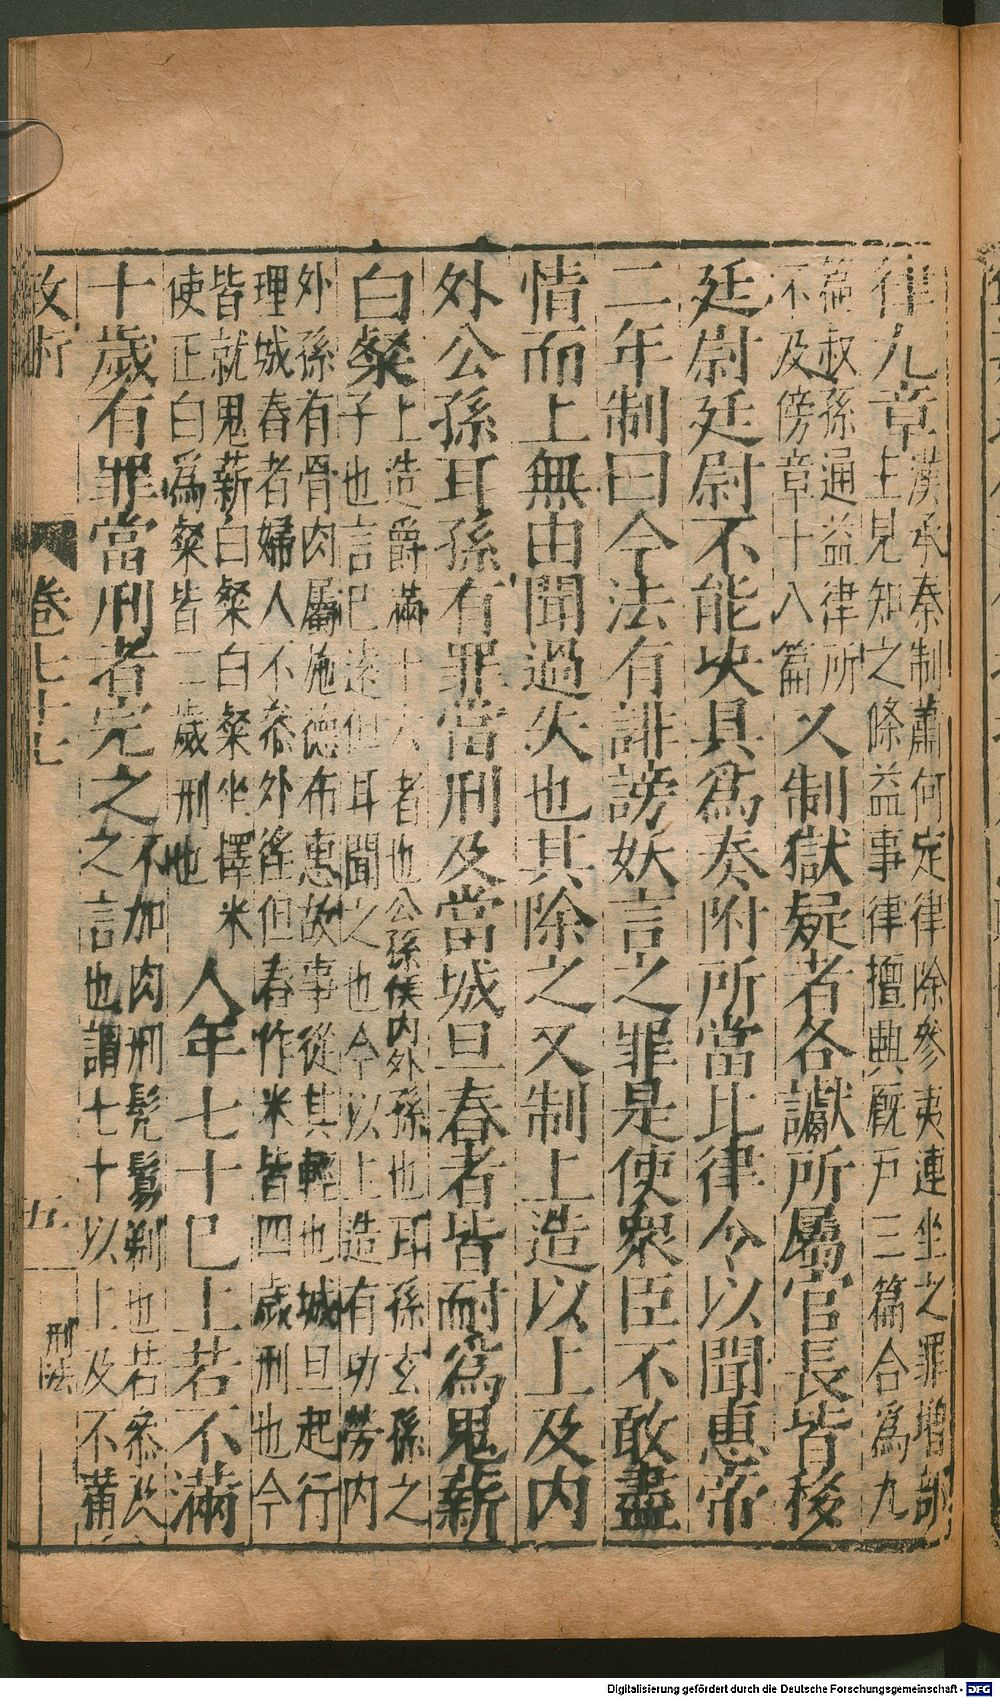 律九章
漢承秦制蕭何定律除參夷連坐之罪增部
主見知之條益事律擅興廄戶三篇合為九
篇叔孫通益律所
不及傍章十八篇
又制獄疑者各讞所屬官長皆移
廷尉廷尉不能决具為奏附所當比律令以聞惠帝
二年制曰今法有誹謗妖言之罪是使衆臣不敢盡
情而上無由聞過失也其除之又制上造以上及内
外公孫耳孫有罪當刑及當城旦舂者皆耐為鬼薪
白粲
上造爵滿十六者也公孫侯内外孫也耳孫玄孫之
子也言已遠但耳聞之也今以上造有功勞内
外孫有骨肉屬施德布惠故事從其輕也城旦起行
理城舂者婦人不叅外徭但舂作米皆四歲刑也今
皆就鬼薪白粲白粲坐擇米
使正白為粲皆二歲刑也
人年七十已上若不滿
十歲有罪當刑者完之
不加肉刑髡鬄剃也若叅以
之言也謂七十以上及不滿
政術
卷七十七
五
刑法
Digitalisierung gefördert durch die Deutsche Forschungsgemeinschaft - DFG